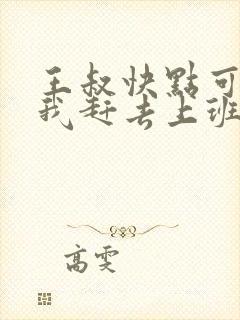 王叔快點可
我赶去上班
高雯